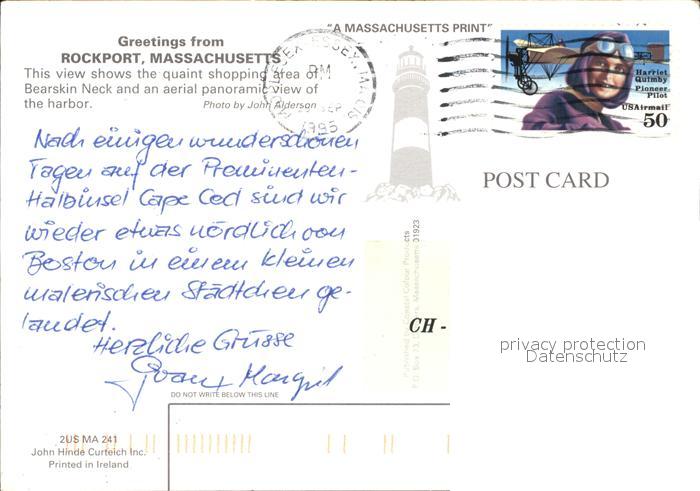 "A MASSACHUSETTS PRINT"
Greetings from
ROCKPORT, MASSACHUSETTS
This view shows the quaint shopping area of
Bearskin Neck and an aerial panoramic view of
the harbor.
Photo by John Alderson
PM
SEP
1995
Harriet
Quimby
Pioneer
Pilot
USAirmail
50
POST CARD
Nach einigen wunderschönen
Tagen auf der Prominenten-
Halbinsel Cape Cod sind wir
wieder etwas nördlich von
Boston in einem kleinen
malerischen Städtchen ge-
landet.
Herzliche Grüsse
Margrit
DO NOT WRITE BELOW THIS LINE
CH -
privacy protection
Datenschutz
2US MA 241
John Hinde Curteich Inc.
Printed in Ireland